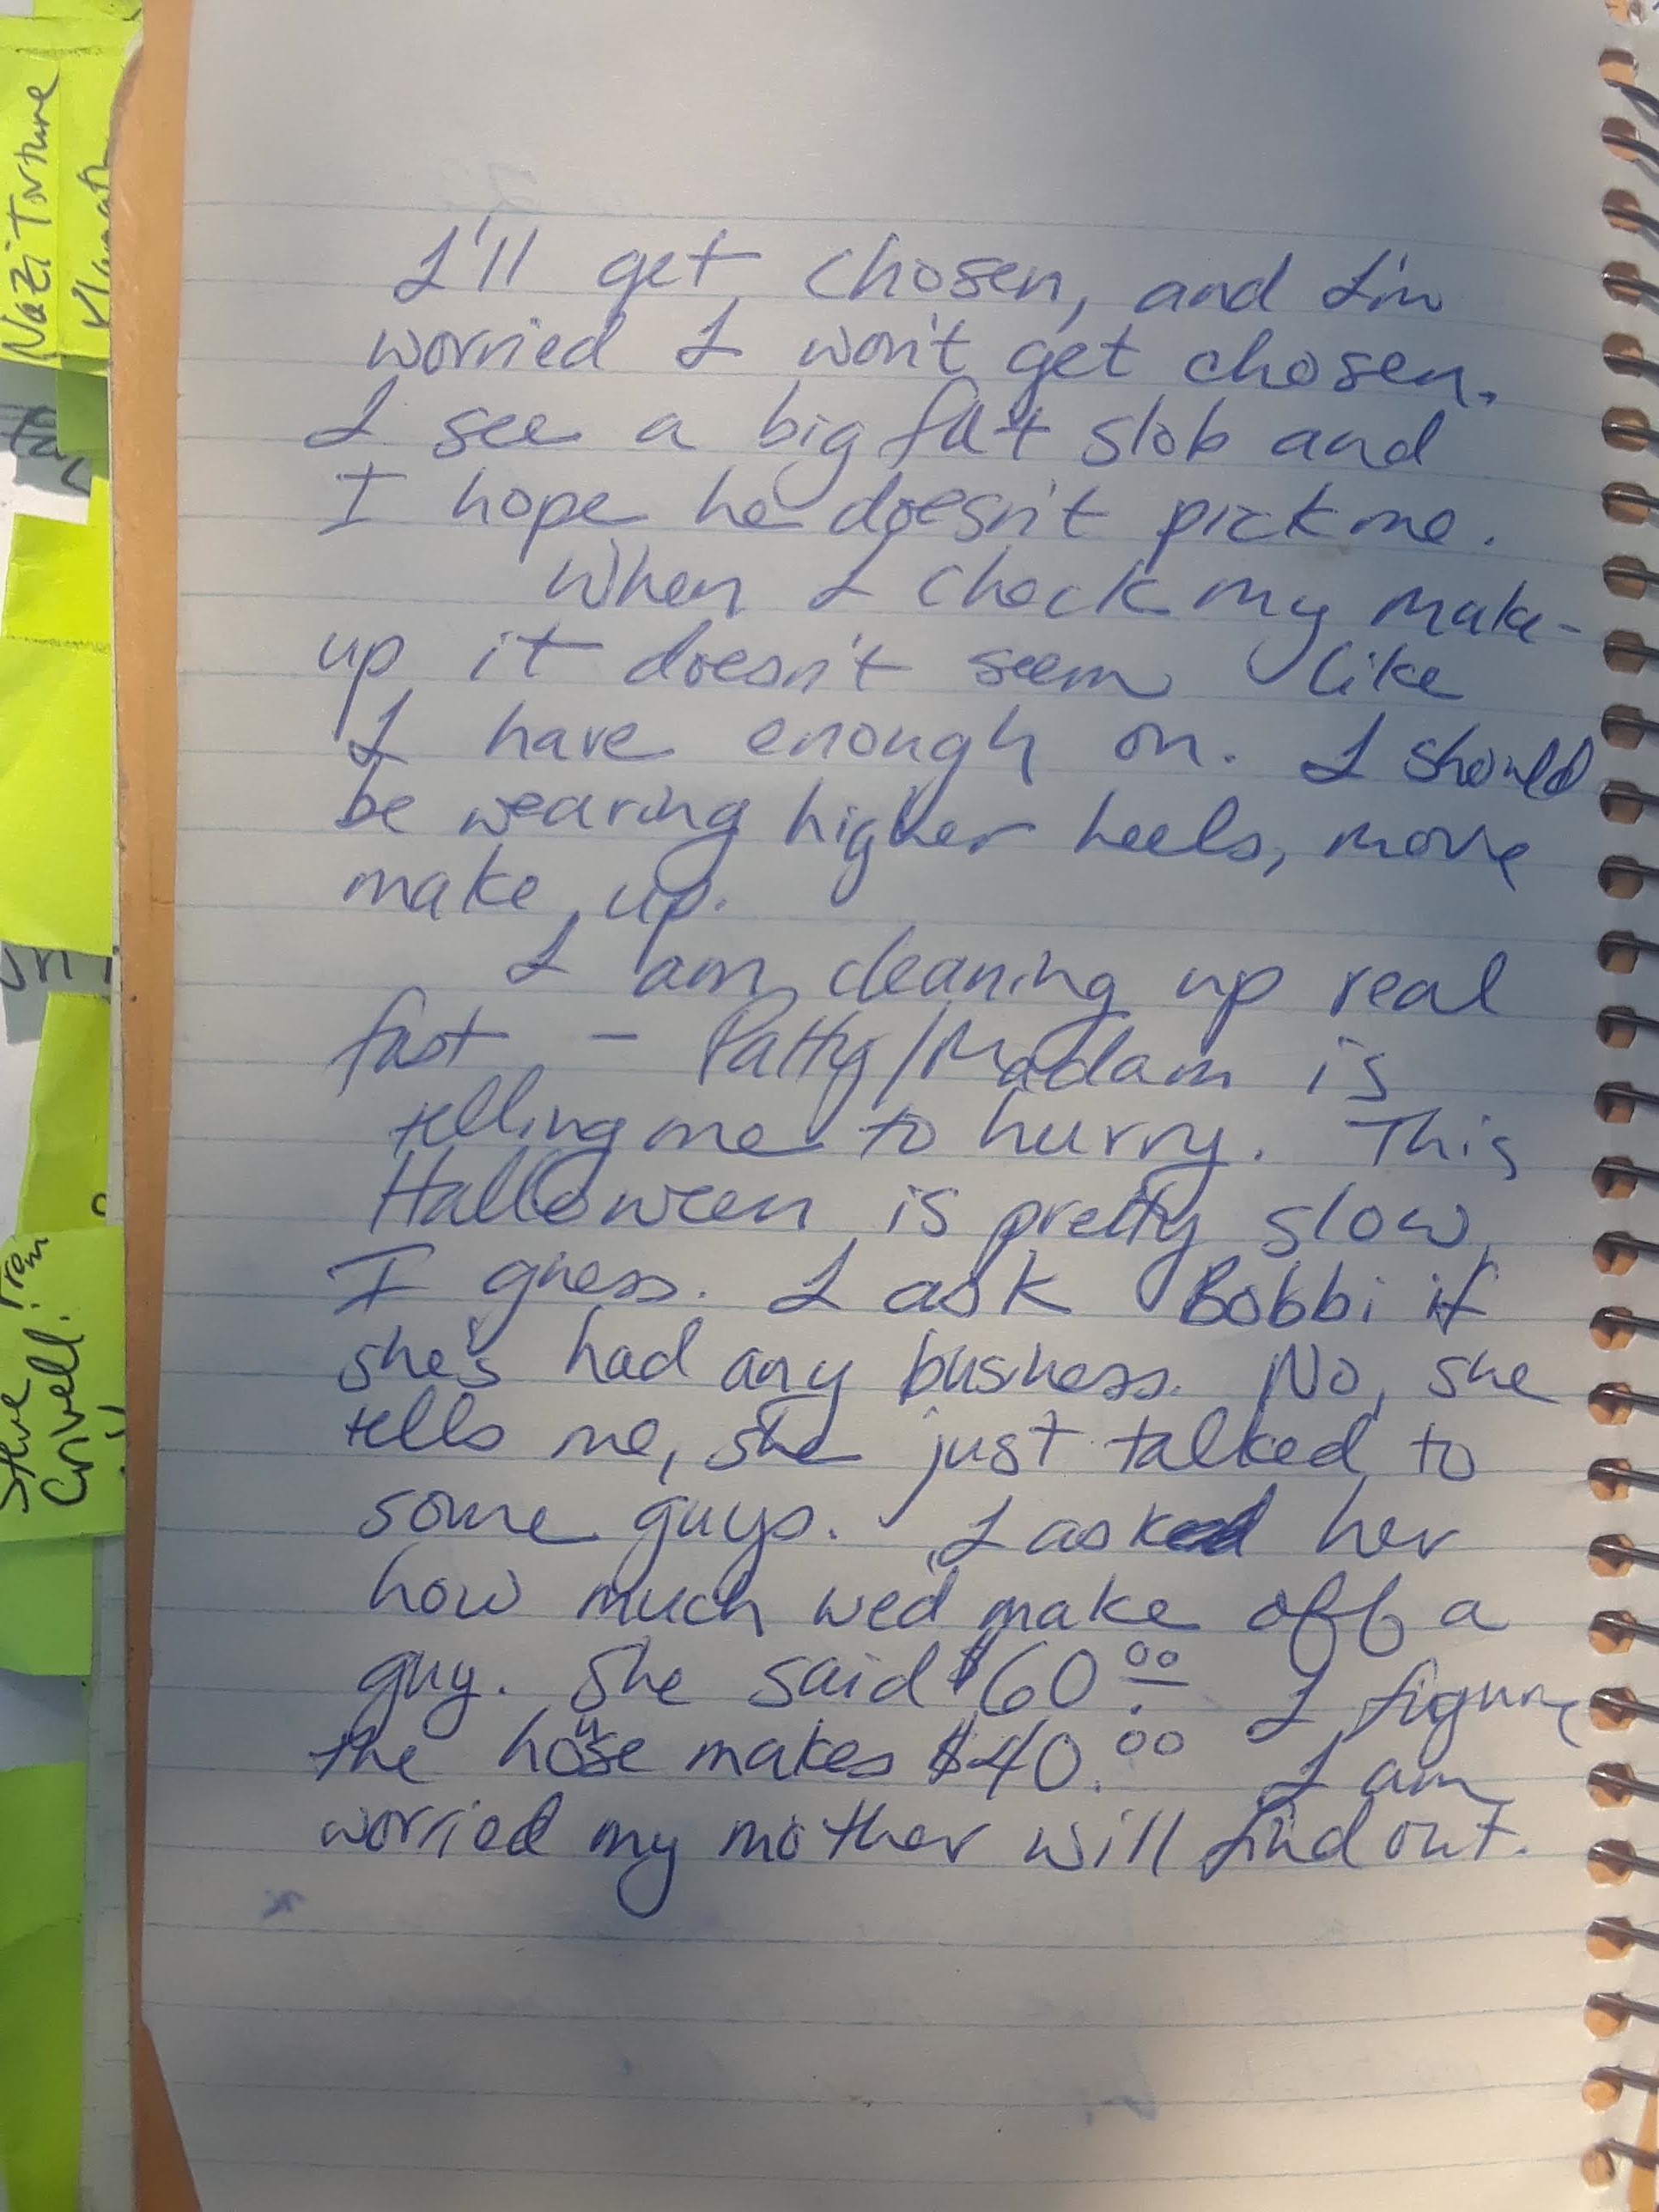 Nazi Torture
I'll get chosen, and I'm
worried I won't get chosen.
I see a big fat slob and
I hope he doesn't pick me.
When I check my make-
up it doesn't seem like
I have enough on. I should
be wearing higher heels, more
make up.
I am cleaning up real
fast - Patty/Madam is
telling me to hurry. This
Halloween is pretty slow,
I guess. I ask Bobbi if
she's had any business. No, she
tells me, she just talked to
some guys. I asked her
how much wed make off a
guy. She said $60.00 I figure
the house makes $40.00 I am
worried my mother will find out.
Steve